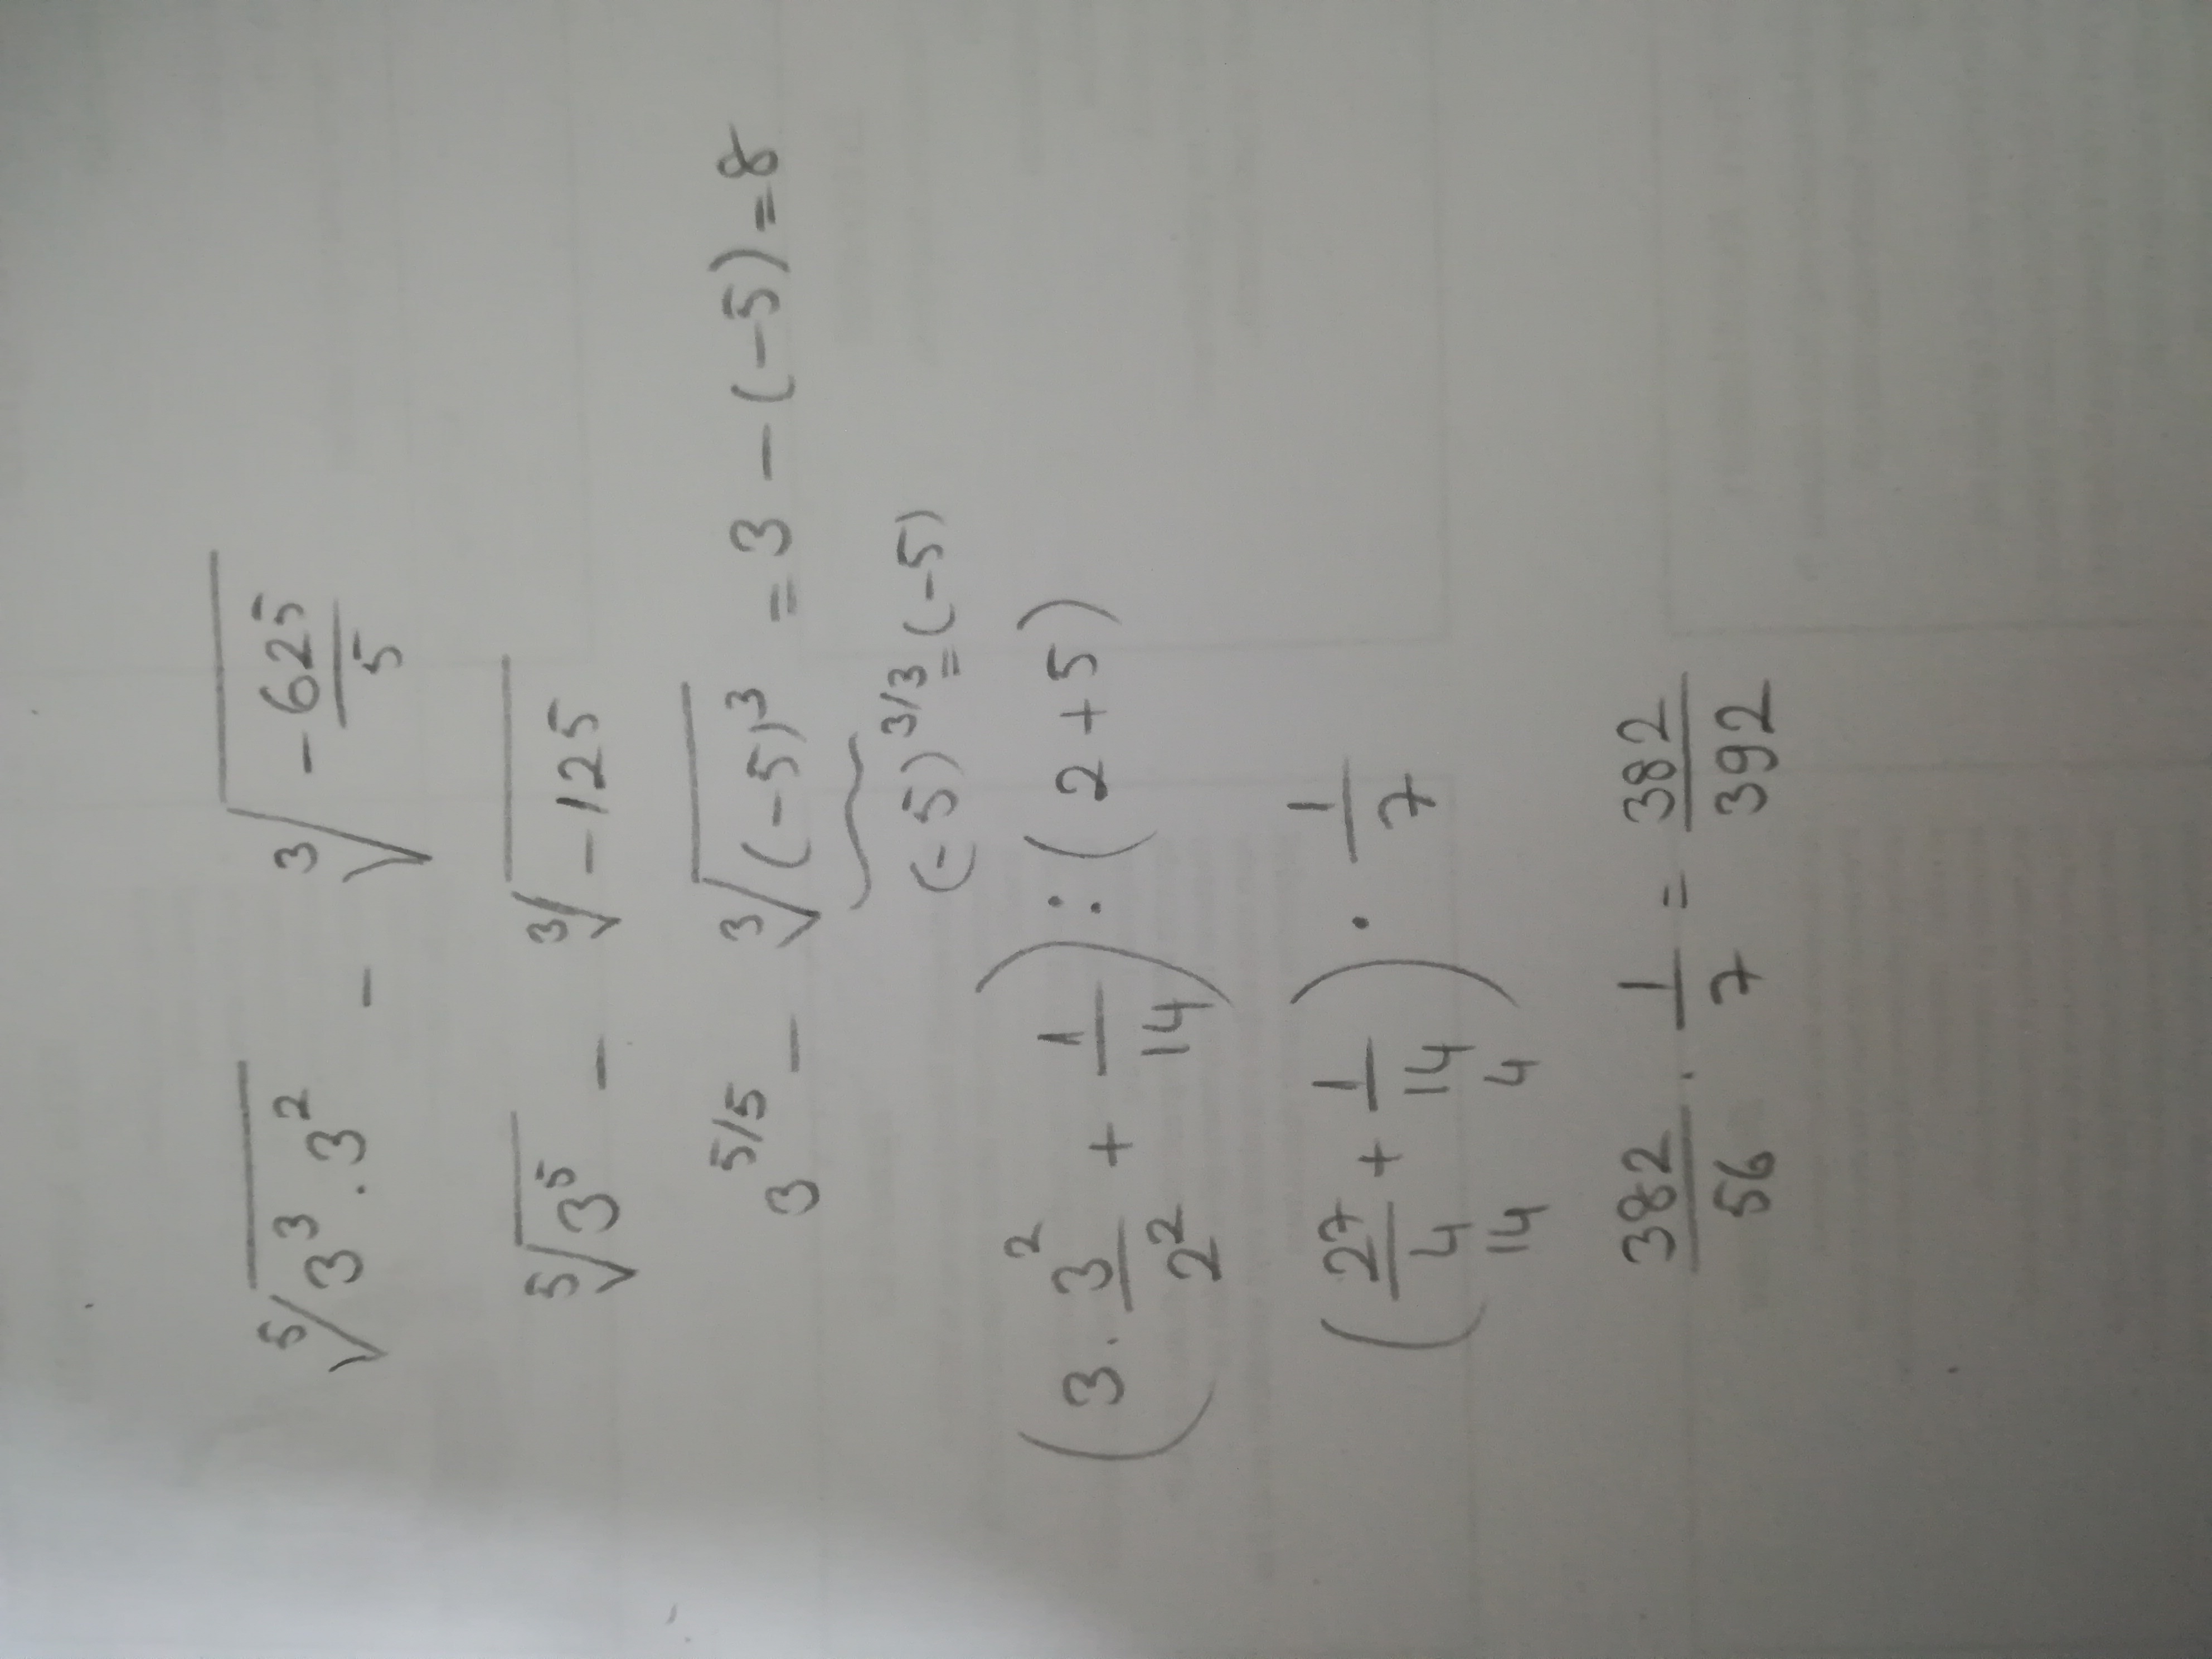 ⁵√(3³.3²) - ³√(-625/5)
⁵√(3⁵) - ³√(-125)
3^(5/5) - ³√((-5)³) = 3 - (-5) = 8
(-5)^(3/3) = (-5)
(3. 3²/2² + 1/14) : (2+5)
(27/4 + 1/14) . 1/7
14 4
382/56 . 1/7 = 382/392